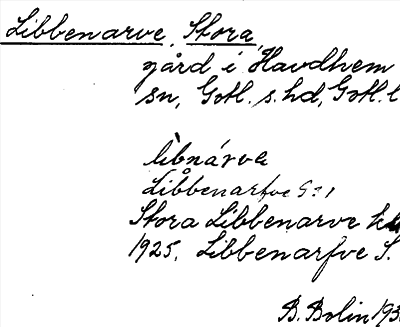 Libbenarve, Stora,
gård i Havdhem
sn, Gotl. s. hd, Gotl. l
lìbnárva
Libbenarfve
Stora Libbenarve
1925. Libbenarfve S.
B. Bolin 193